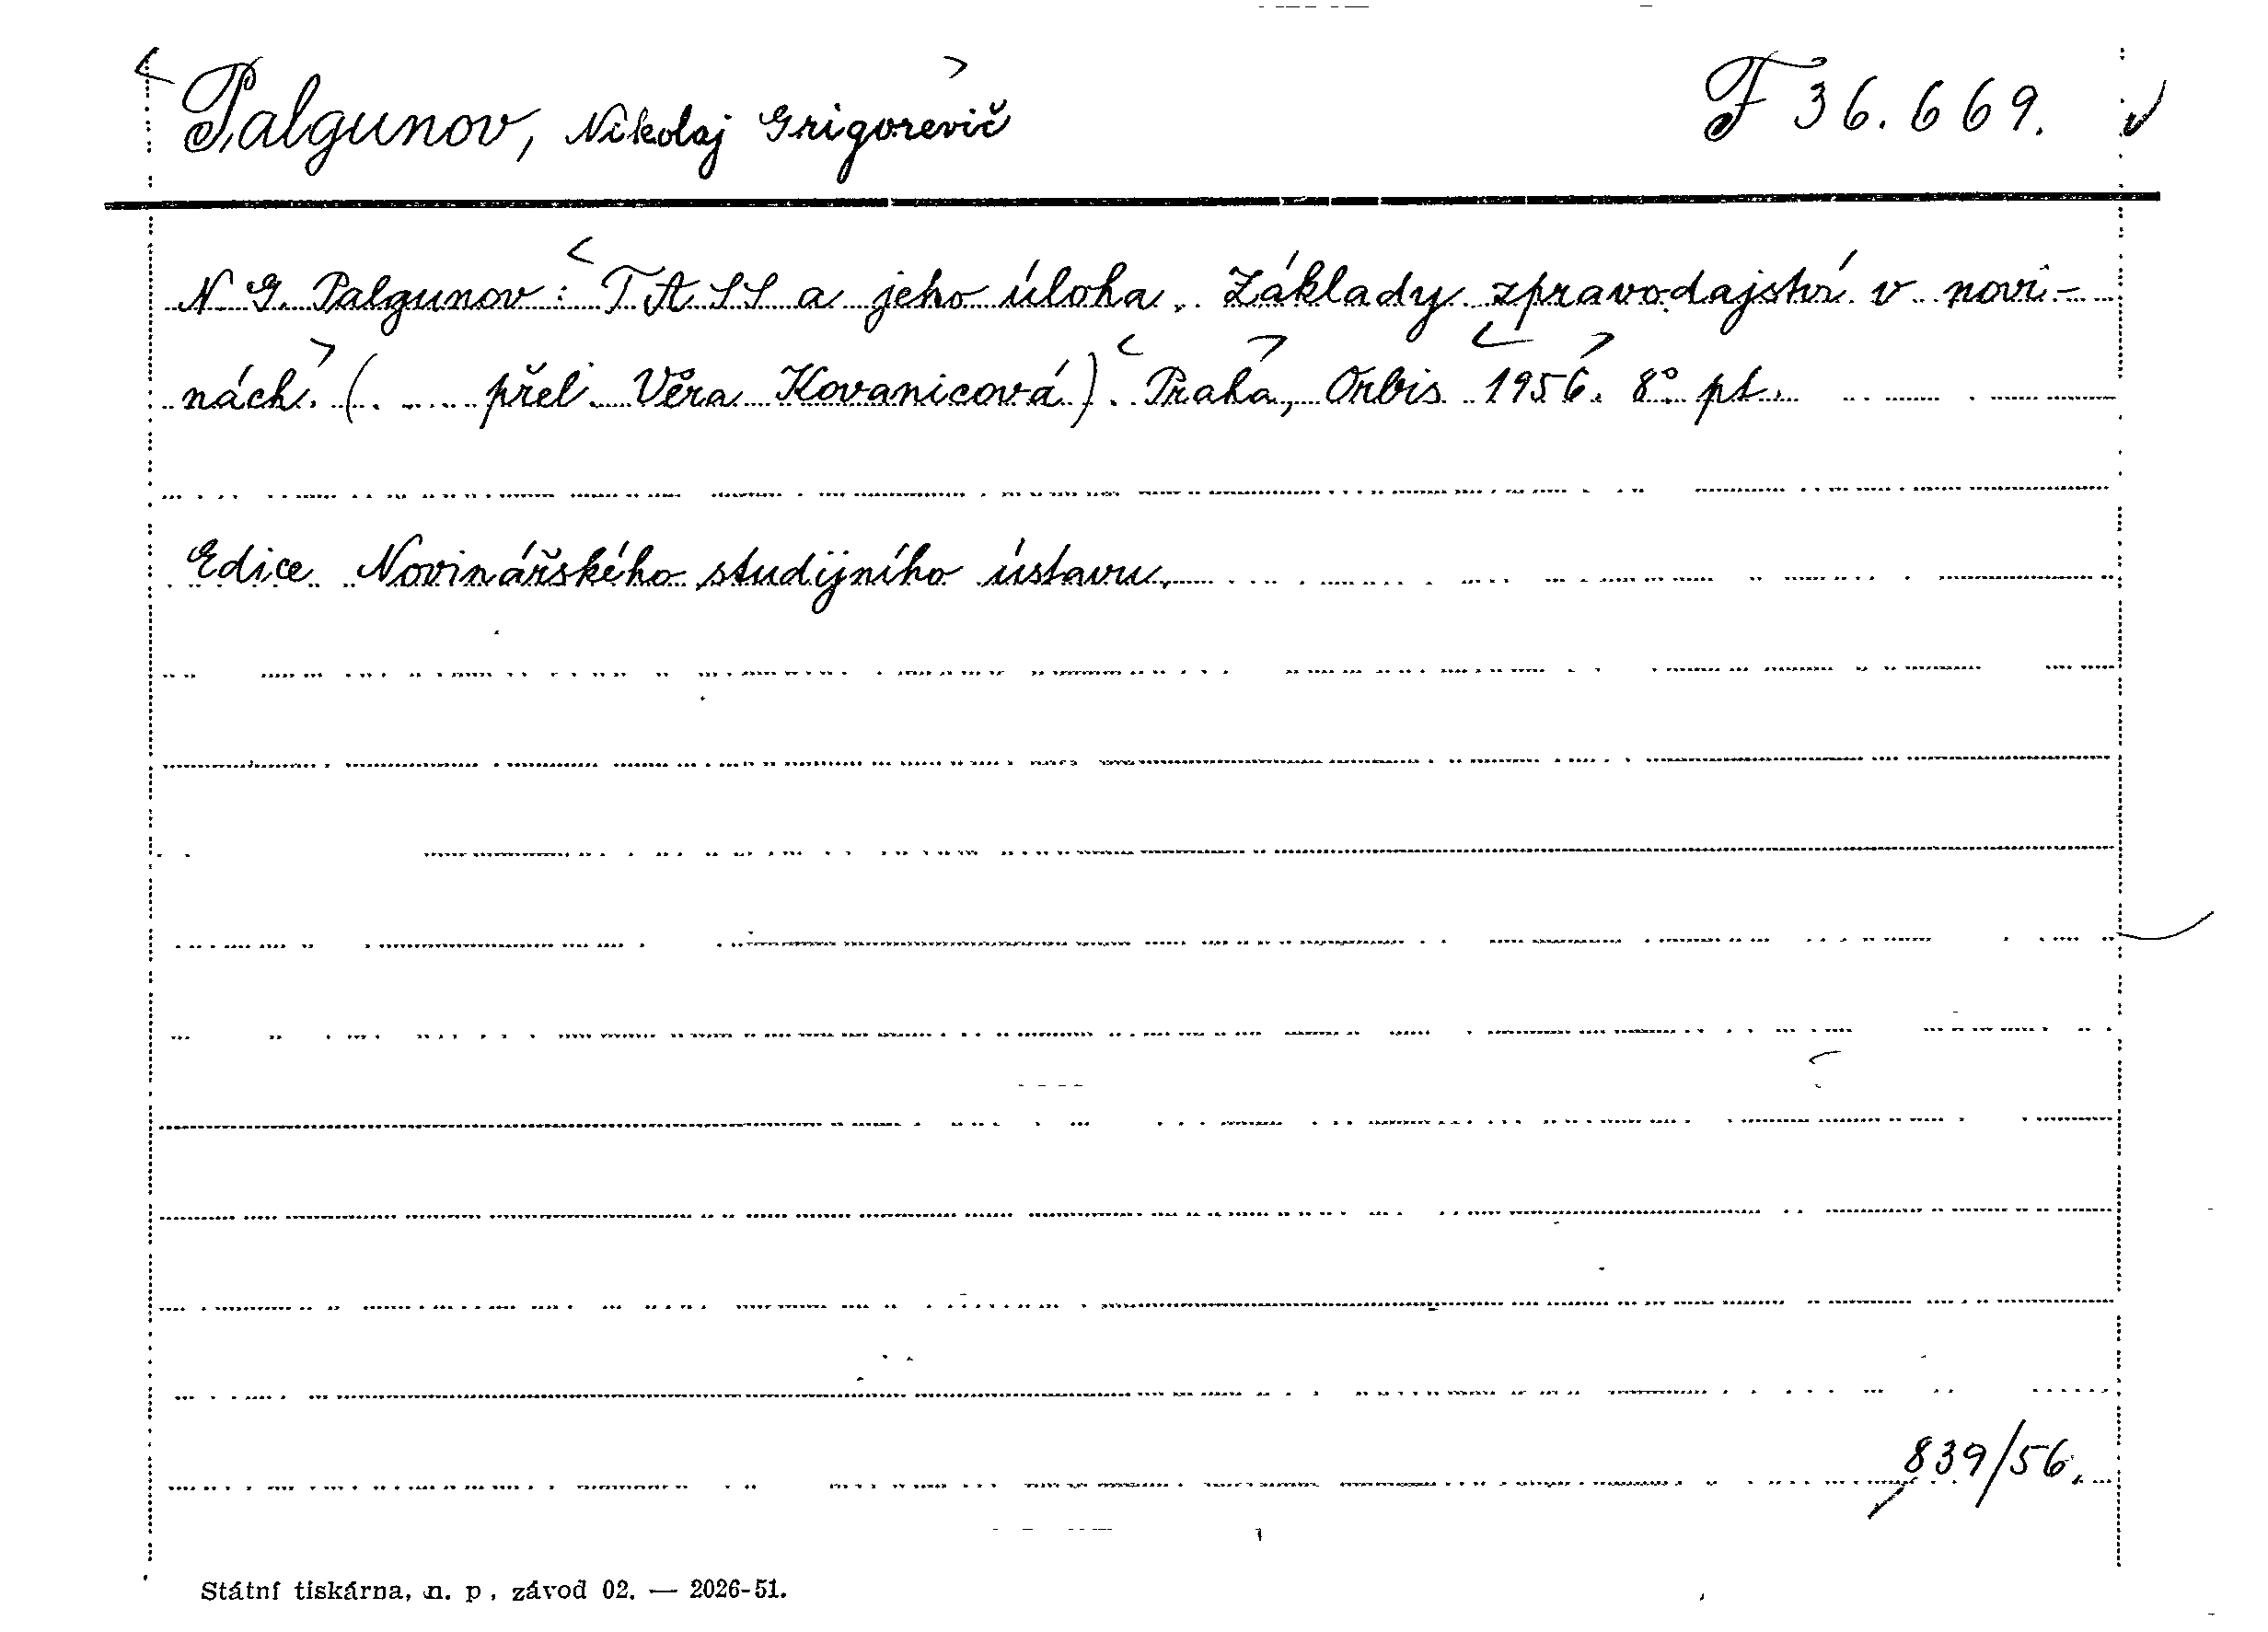 Palgunov, Nikolaj Grigorevič F 36.669.
N. G. Palgunov: TASS a jeho úloha. Základy zpravodajství v novi-
nách. (. ..... přel. Věra Kovanicová). Praha, Orbis 1956. 8°. pt.
Edice Novinářského studijního ústavu.
839/56.
Státní tiskárna, n. p., závod 02. — 2026-51.